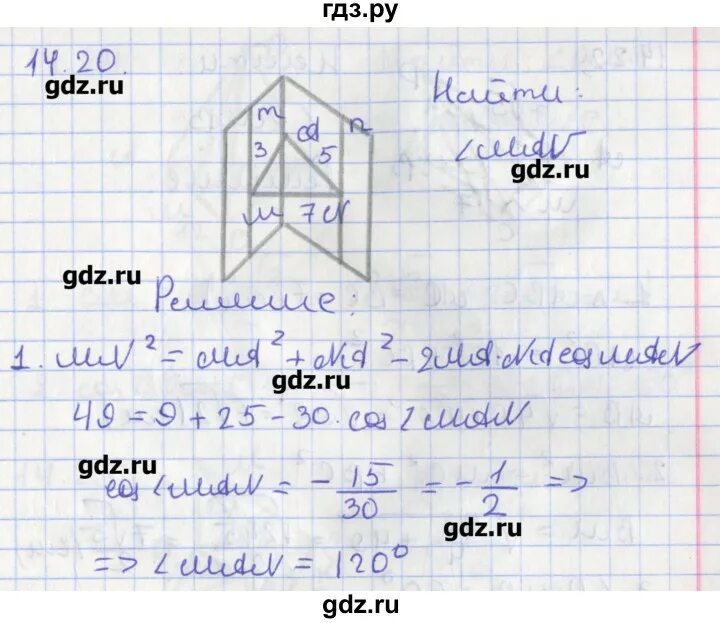 гдз.ру
14.20.
gdz.ru
Найти:
m n
A
3 5
∠MAN
gdz.ru
M 7 N
gdz.ru
Решение:
1. MN² = MA² + NA² - 2MA·NA cos MAN
gdz.ru
49 = 9 + 25 - 30·cos∠MAN
gdz.ru
cos∠MAN = -15/30 = -1/2 =>
gdz.ru
=> ∠MAN = 120°
gdz.ru